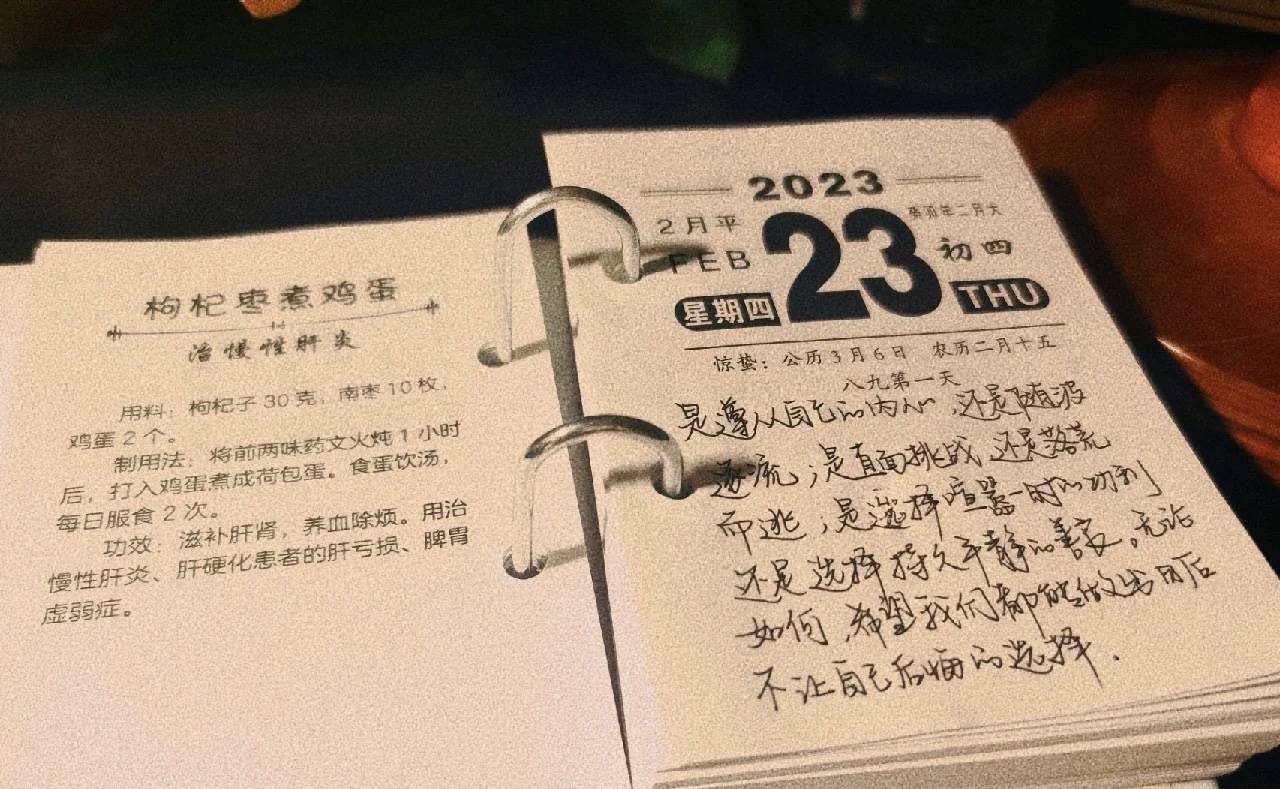 枸杞枣煮鸡蛋
治慢性肝炎
用料：枸杞子30克，南枣10枚，
鸡蛋2个。
制用法：将前两味药文火炖1小时
后，打入鸡蛋煮成荷包蛋。食蛋饮汤，
每日服食2次。
功效：滋补肝肾，养血除烦。用治
慢性肝炎、肝硬化患者的肝亏损、脾胃
虚弱症。
2023
2月平
FEB
星期四
23
癸卯年二月大
初四
THU
惊蛰：公历3月6日 农历二月十五
八九第一天
是遵从自己的内心，还是随波
逐流；是直面挑战，还是落荒
而逃；是选择喧嚣一时的功利
还是选择持久平静的善良。无论
如何，希望我们都能做出日后
不让自己后悔的选择.